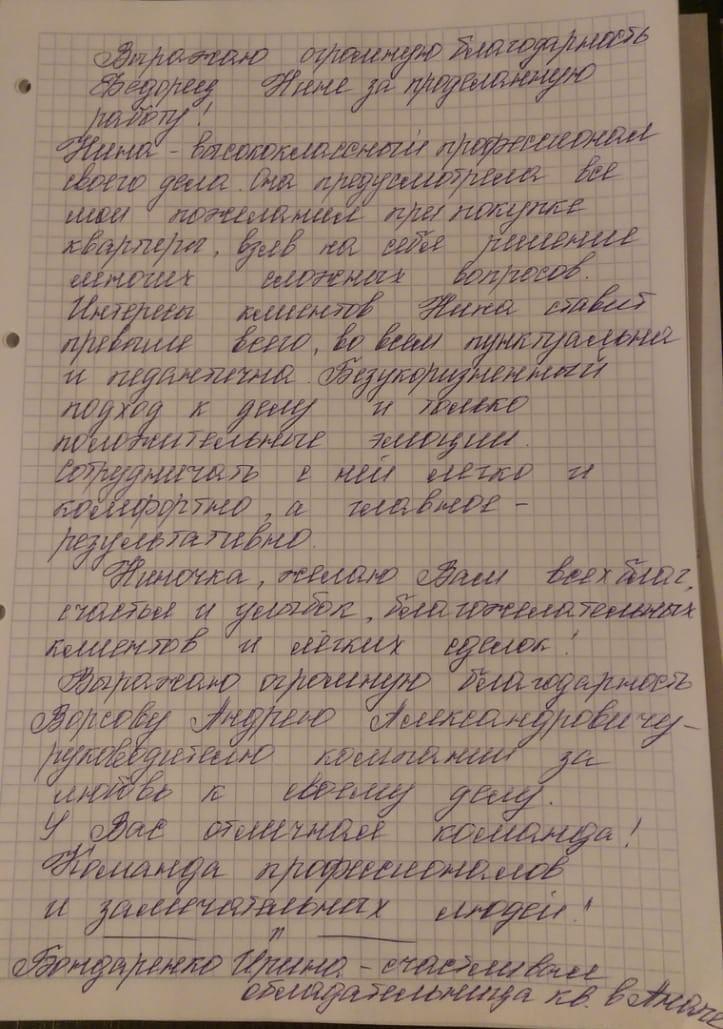 Выражаю огромную благодарность
Федорец Нине за проделанную
работу!
Нина - высококлассный профессионал
своего дела. Она предусмотрела все
мои пожелания при покупке
квартиры, взяв на себя решение
многих сложных вопросов.
Интересы клиентов Нина ставит
превыше всего, во всем пунктуальна
и педантична. Безукоризненный
подход к делу и только
положительные эмоции.
Сотрудничать с ней легко и
комфортно, а главное -
результативно.
Ниночка, желаю Вам всех благ,
счастья и улыбок, благожелательных
клиентов и лёгких сделок!
Выражаю огромную благодарность
Ворсову Андрею Александровичу -
руководителю компании за
любовь к своему делу.
У Вас отличная команда!
Команда профессионалов
и замечательных людей!
Бондаренко Ирина - счастливая
обладательница кв. в Анапе